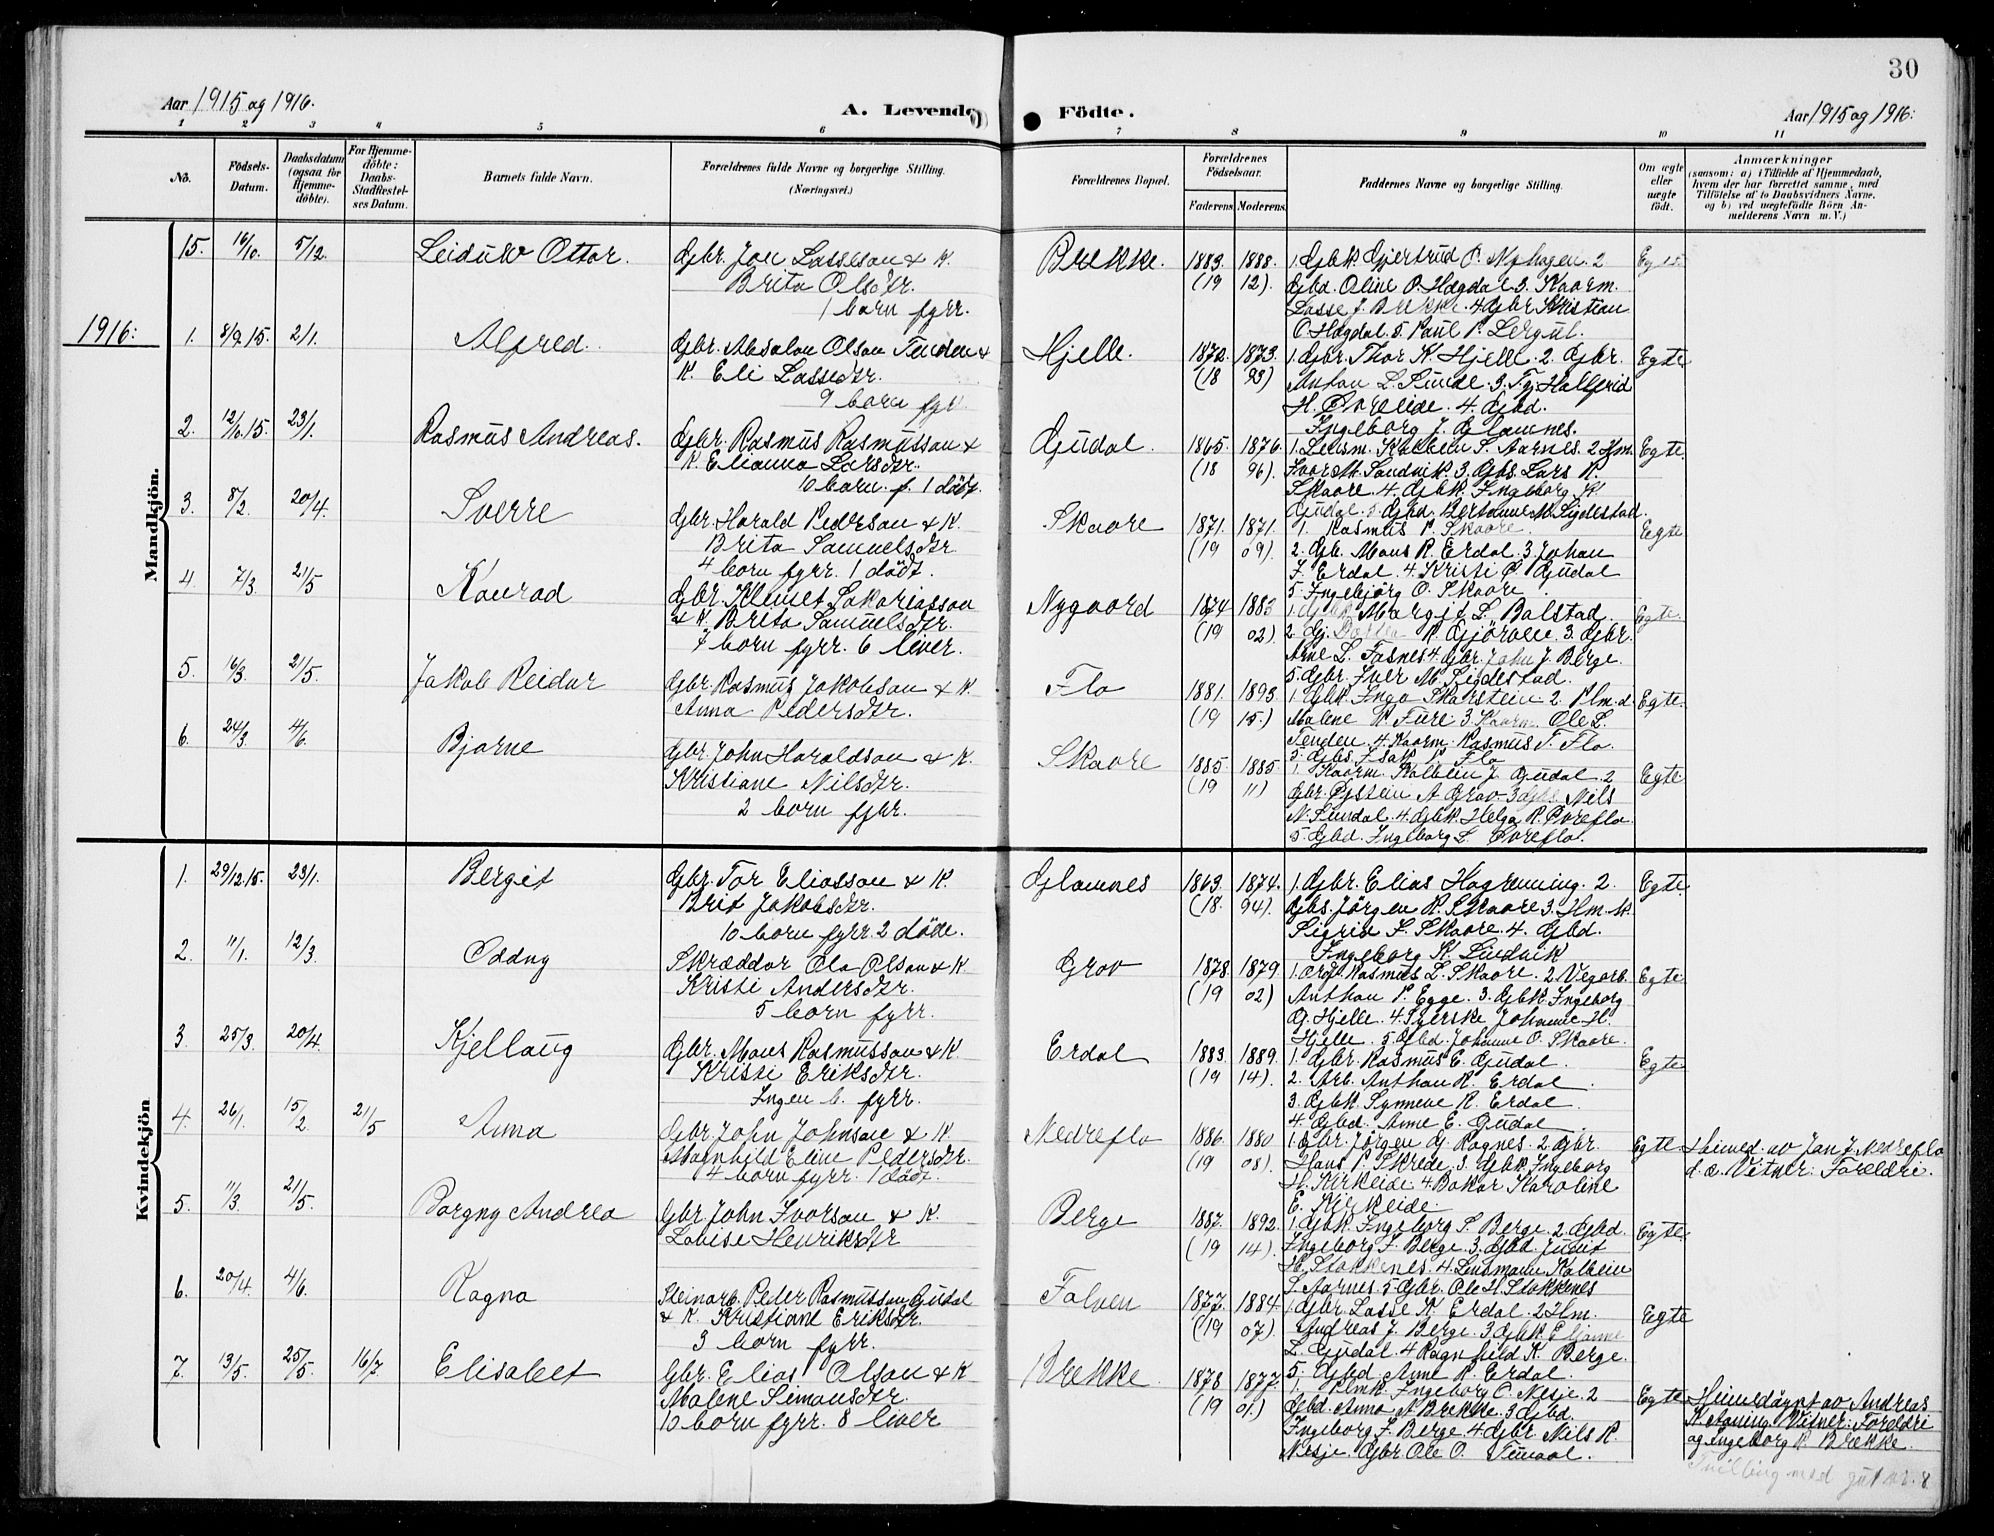 30
Aar 1915 og 1916.
A. Levende Födte.
Aar 1915 og 1916.
1 2 3 4 5 6 7 8 9 10 11
No.
Födsels-Datum.
Daabsdatum (ogsaa for Hjemme-döbte).
For Hjemme-döbte: Daabs-Stadfæstel-ses Datum.
Barnets fulde Navn.
Forældrenes fulde Navne og borgerlige Stilling.
(Næringsvei.)
Forældrenes Bopæl.
Forældrenes Födselsaar.
Faderens. Moderens.
Faddernes Navne og borgerlige Stilling.
Om ægte eller uægte födt.
Anmærkninger
(saasom: a) i Tilfælde af Hjemmedaab, hvem der har forrettet samme, med Tilföielse af to Daabsvidners Navne, og b) ved uægtefödte Börn An-melderens Navn m. V.)
Mandkjön.
15. 16/10. 5/12. Leidulv Ottar. Gbr. Jon Lasseson & K. Brekke. 1883. 1888. 1. Gbk Gjertrud P. Nyhagen. 2 Egte
Brita Olsdtr. (19 12). Gbd. Oline P. Hægdal 3. Kaarm.
1 born fyrr. Lasse J. Brekke. 4. Gbr Kristian
O. Hægdal. 5. Paul P. Lergul.
1916:
1. 8/9 15. 2/1. Alfred. Gbr. Absalon Olson Tenden & Hjelle. 1872. 1873. 1. Gbr. Thor K. Hjelle. 2. Gbr. Egte
K. Eli Lassedtr. (18 93) Anton L. Sunde. 3. Tj. Halfrid
9 born fyrr. H. Øvreeide. 4. Gbd.
Ingeborg J. Glamnes.
2. 12/6. 15. 23/1. Rasmus Andreas. Gbr. Rasmus Rasmusson & Gjudal. 1865. 1876. 1. Lensm. Kolbein S. Aarnes. 2 Hm. Egte.
K. Elianna Larsdtr. (18 96). Ivar M. Sandvik. 3. Gbs. Lars R.
10 born. f. 1 dödt. Skaare. 4. Gbk. Ingeborg K.
Gjudal. 5 Gbd. Bertanne M. Sigdestad.
3. 8/2. 20/4. Sverre Gbr. Harald Pederson & K. Skaare 1871. 1871. 1. Rasmus P. Skaare. Egte
Brita Samuelsdtr. (19 09). 2. Gbr. Mons R. Erdal. 3. Johan
4 born fyrr. 1 dödt. J. Erdal. 4. Kristi P. Gjudal
5. Ingebjörg O. Skaare
4. 7/3. 21/5 Konrad Gbr. Klemet Sakariasson Nygaard 1874. 1883 1. Gbk. Margit L. Bolstad. Egte.
& K. Brita Samuelsdtr. (19 02) 2. Gj. R. Gjörven. 3. Gbr.
7 born fyrr. 6 liver. Arne L. Fosnes. 4. Gbr. John J. Berge.
5. Gbr. Iver M. Sigdestad.
5. 16/3. 21/5. Jakob Reidar Gbr. Rasmus Jakobson & K. Flo 1881. 1893 1. Gbk. Inga Skarstein. 2. Plm. d. Egte.
Anna Pedersdtr. (19 15.) Malene P. Fure. 3. Kaarm. Ole L.
Tenden. 4. Kaarm. Rasmus T. Flo.
5. Gbs. Isak P. Flo
6. 24/3. 4/6. Bjarne Gbr. John Haraldson & K. Skaare 1885. 1885. 1. Kaarm. Kolbein J. Gjudal. 2 Egte.
Kristiane Nilsdtr. (19 11) Gbr. Øistein A Grov. 3 Gbs. Nils
2 born fyrr. N. Sundal. 4. Gbk. Helga R. Øvreflo.
5. Gbd. Ingeborg L. Øvreflo.
Kvindekjön
1. 29/12. 15. 23/1. Bergit Gbr. Tor Eliasson & K. Glamnes 1863. 1874. 1. Gbr. Elias Hagenning. 2. Egte
Brit Jakobsdtr. (18. 94). Gbs. Jörgen R. Skaare. 3. Hm. K.
10 born fyrr. 2 döde. Sigrid I. Skaare. 4. Gbd.
Ingeborg K. Sindvik
2. 11/1. 12/3. Oddny Skræddar Ola Olson & K. Grov 1878. 1879. 1. Rasmus L. Skaare. 2. Vegarb. Egte
Kristi Andersdtr. (19 02) Anthon P. Egge. 3. Gbk. Ingeborg
5 born fyrr. G. Hjelle. 4. Syerske Johanne H.
Hjelle. 5. Gbd. Johanne O. Skaare.
3. 25/3. 20/4. Kjellaug Gbr. Mons Rasmusson & K. Erdal 1883. 1889. 1. Gbr. Rasmus E. Gjudal. Egte
Kristi Eriksdtr. (19 14). 2. Arb. Anthon R. Erdal.
Ingen b. fyrr. 3. Gbk. Synneve R. Erdal.
4. Gbd. Anne E. Gudal.
4. 26/1. 15/2. 21/5 Anna Gbr. John Johnson & K. Nedreflo 1886. 1880 1. Gbr. Jörgen G. Ragnes. 2. Gbr. Egte Heimed. av Jan J. Nedreflo
Magnhild Eline Pedersdtr. (19 08). Hans P. Skrede. 3. Gbk. Ingeborg d. e. Vitner: Foreldri.
4 born fyrr. 1 dödt. H. Kirkeide. 4. Bakar Karoline
E. Kirkeide.
5. 11/3. 21/5. Borgny Andrea Gbr. John Ivarson & K. Berge 1887. 1892. 1. Gbk. Ingeborg S. Berge. 2. Gbd. Egte.
Lovise Henriksdtr (19 14). Ingeborg J. Berge. 3. Gbd. Judit
H. Stokkenes. 4. Lensmann Kolbein
S. Aarnes. 5. Gbr. Ole H. Stokkenes
6. 20/4. 4/6. Ragna Steinarb. Peder Rasmusson Gjudal Folven 1877. 1884. 1. Gbr. Lasse K. Erdal. 2 Hm. Egte
& K. Kristiane Eriksdtr. (19 07). Andreas J. Berge. 3. Gbk. Elianne
3 born fyrr. L. Gjudal. 4 Ragnhild K. Berge.
5. Gbd. Anne R. Erdal.
7. 13/5. 25/5. 16/7. Elisabet Gbr. Elias Olson & K Brekke. 1878. 1877. 1. Plmk. Ingeborg O. Nesje. 2 Egte Heimedöypt av Andreas
Malene Simonsdtr. (19 01.) Gbd. Anna A Brekke. 3 Gbd. K. Aaning. Vitner: Foreldri
10 born fyrr. 8 liver Ingeborg J. Berge. 4. Gbr. Nils R. og Ingeborg R. Brekke.
Nesje. Gbr. Ole O. Tunaal. Tvilling med gut nr. 8